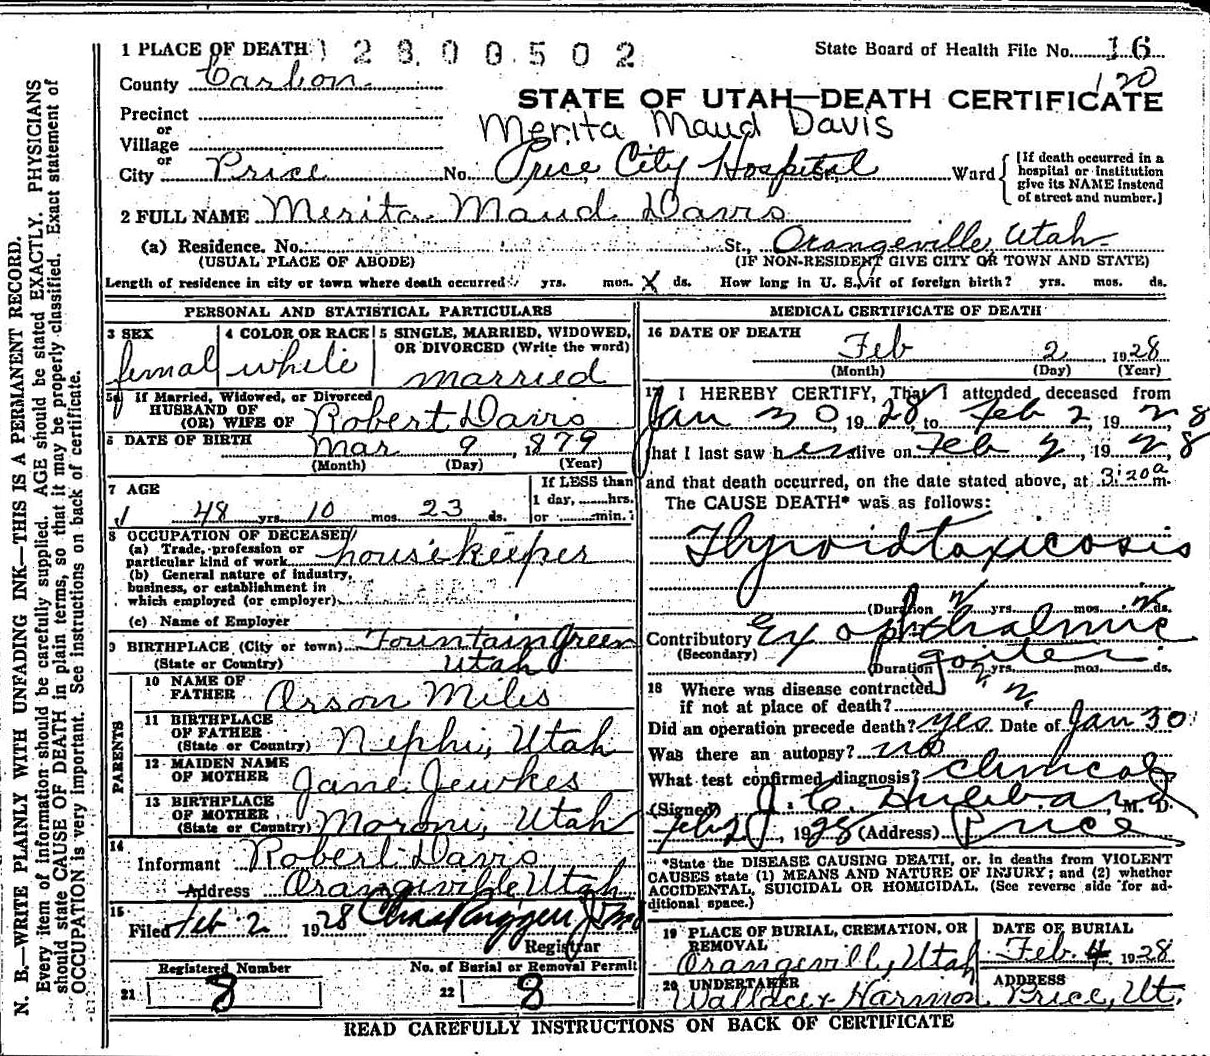 1 PLACE OF DEATH 12800502 State Board of Health File No. 16
120
County Carbon
STATE OF UTAH—DEATH CERTIFICATE
Precinct
or
Merita Maud Davis
Village
or
City Price No. Price City Hospital Ward
[If death occurred in a hospital or institution give its NAME instead of street and number.]
2 FULL NAME Merita Maud Davis
(a) Residence. No. St., Orangeville Utah
(USUAL PLACE OF ABODE) (IF NON-RESIDENT GIVE CITY OR TOWN AND STATE)
Length of residence in city or town where death occurred yrs. mos. X ds. How long in U. S., if of foreign birth? yrs. mos. ds.
PERSONAL AND STATISTICAL PARTICULARS
3 SEX
femal
4 COLOR OR RACE
white
5 SINGLE, MARRIED, WIDOWED,
OR DIVORCED (Write the word)
married
5a If Married, Widowed, or Divorced
HUSBAND OF
(OR) WIFE OF Robert Davis
6 DATE OF BIRTH Mar 9, 1879
(Month) (Day) (Year)
7 AGE
48 yrs. 10 mos. 23 ds.
If LESS than
1 day, hrs.
or min.
8 OCCUPATION OF DECEASED
(a) Trade, profession or
particular kind of work housekeeper
(b) General nature of industry,
business, or establishment in
which employed (or employer)
(c) Name of Employer
9 BIRTHPLACE (City or town) Fountain Green
(State or Country) Utah
PARENTS
10 NAME OF
FATHER Orson Miles
11 BIRTHPLACE
OF FATHER
(State or Country) Nephi, Utah
12 MAIDEN NAME
OF MOTHER Jane Jewkes
13 BIRTHPLACE
OF MOTHER
(State or Country) Moroni, Utah
14
Informant Robert Davis
Address Orangeville Utah
15
Filed Feb 2 1928
Registrar
Registered Number
21 8
No. of Burial or Removal Permit
22 8
MEDICAL CERTIFICATE OF DEATH
16 DATE OF DEATH
Feb 2 1928
(Month) (Day) (Year)
17 I HEREBY CERTIFY, That I attended deceased from
Jan 30, 1928, to Feb 2, 1928
that I last saw her alive on Feb 2, 1928
and that death occurred, on the date stated above, at 3:20 a m.
The CAUSE DEATH* was as follows:
Thyroidtoxicosis
(Duration yrs. mos. ds.
Contributory Exophthalmic
(Secondary) goiter
(Duration yrs. mos. ds.
18 Where was disease contracted
if not at place of death?
Did an operation precede death? yes Date of Jan 30
Was there an autopsy? no
What test confirmed diagnosis? clinical
(Signed) J. C. Hubbard M. D.
Feb 2, 1928 (Address) Price
*State the DISEASE CAUSING DEATH, or, in deaths from VIOLENT
CAUSES state (1) MEANS AND NATURE OF INJURY; and (2) whether
ACCIDENTAL, SUICIDAL OR HOMICIDAL. (See reverse side for ad-
ditional space.)
19 PLACE OF BURIAL, CREMATION, OR
REMOVAL
Orangeville, Utah
DATE OF BURIAL
Feb. 4 1928
20 UNDERTAKER
Wallace & Harmon
ADDRESS
Price, Ut.
READ CAREFULLY INSTRUCTIONS ON BACK OF CERTIFICATE
N. B.—WRITE PLAINLY WITH UNFADING INK—THIS IS A PERMANENT RECORD.
Every item of information should be carefully supplied. AGE should be stated EXACTLY. PHYSICIANS
should state CAUSE OF DEATH in plain terms, so that it may be properly classified. Exact statement of
OCCUPATION is very important. See instructions on back of certificate.